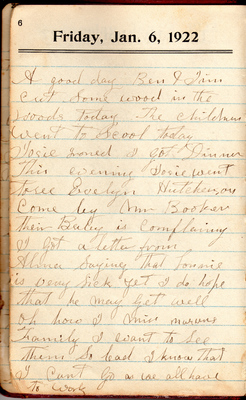 6
Friday, Jan. 6, 1922
A good day Ben & Jim
cut some wood in the
woods today The children
went to Scool today
Josie Ironed I got Dinner
This evening Josie went
to see Evelyn Hutchenson
Come by Mr Booker
their Baby is Complainy
I got a letter from
saying that
is very sick yet I do hope
that he may get well
oh how I miss
Family I want to see
them So bad I know that
I can't go as we all have
to work